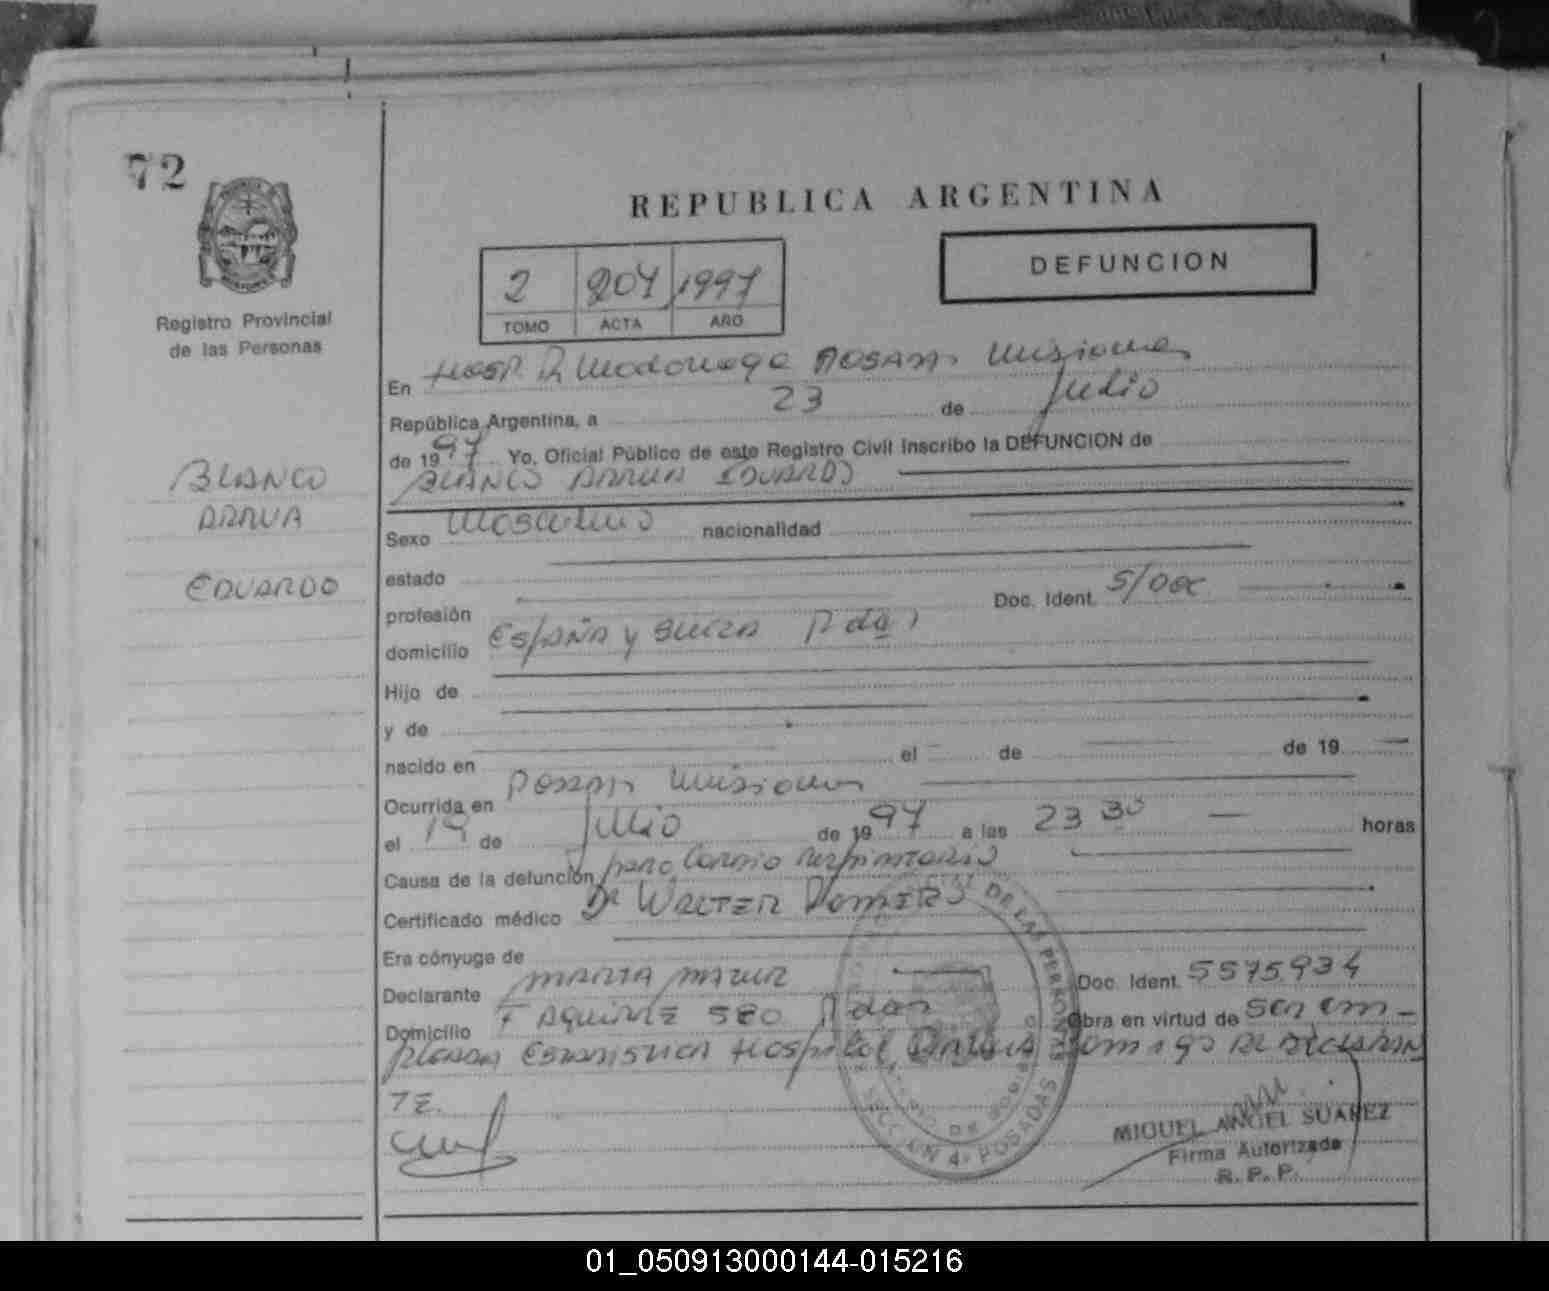 72
REPUBLICA ARGENTINA
DEFUNCION
2 204 1997
TOMO ACTA AÑO
Registro Provincial
de las Personas
En Hosp. R. Madariaga Posadas Misiones
República Argentina, a 23 de Julio
de 1997 Yo, Oficial Público de este Registro Civil inscribo la DEFUNCION de
BLANCO ARRUA EDUARDO
BLANCO
ARRUA
EDUARDO
Sexo Masculino nacionalidad
estado
profesión Doc. Ident. S/Doc
domicilio España y Suiza Pdas
Hijo de
y de
nacido en el de de 19
Ocurrida en Posadas Misiones
el 19 de Julio de 1997 a las 23 30 horas
Causa de la defunción paro Cardio respiratorio
Certificado médico Dr WALTER
Era cónyuge de
Declarante MARTA Doc. Ident. 5575934
Domicilio F AQUIRRE 580 Pdas Obra en virtud de ser em-
Hospital DECLARAN
TE.
DE LAS PERSONAS
SECCION 4ª POSADAS
MIGUEL ANGEL SUAREZ
Firma Autorizada
R. P. P.
01_050913000144-015216